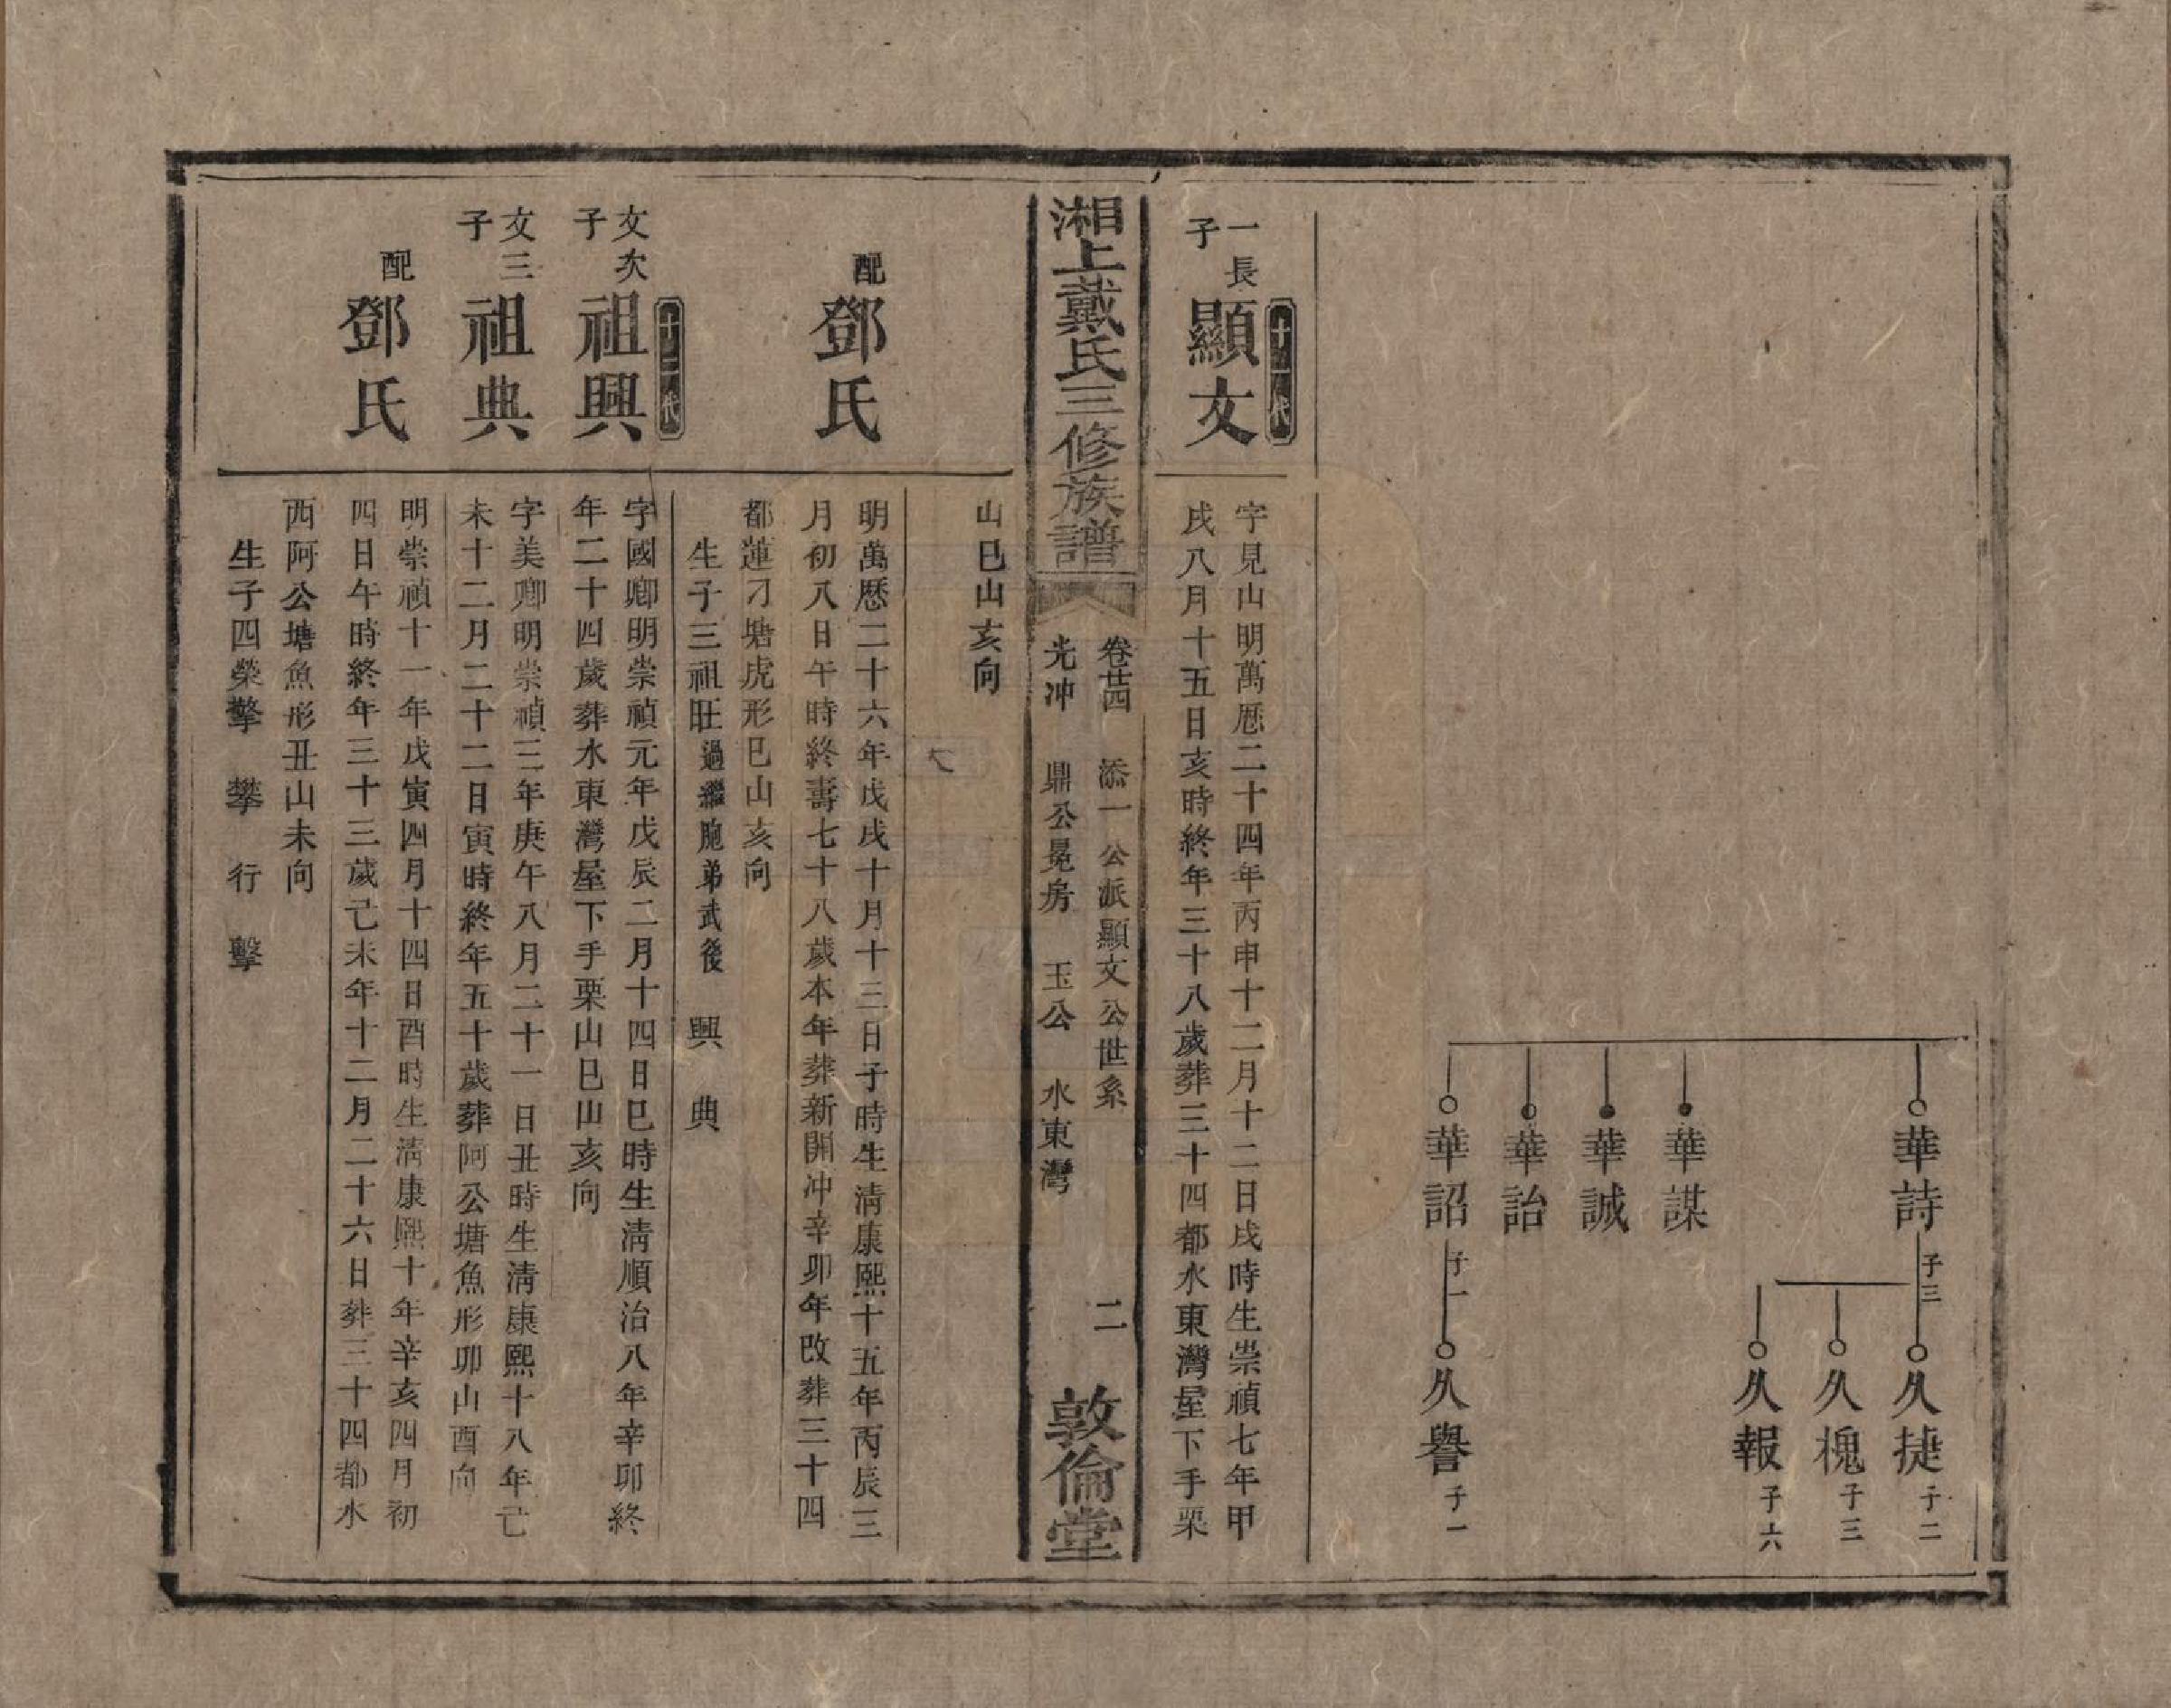 華詩
子三
久捷
子二
久槐
子三
久報
子六
華謀
華誠
華詒
華詔
子一
久譽
子一
十一代
一長子
顯文
字見山明萬歷二十四年丙申十二月十二日戌時生崇禎七年甲
戌八月十五日亥時終年三十八歲葬三十四都水東灣屋下手栗
湘上戴氏三修族譜
卷廿四 添一公派顯文公世系
光冲 鼎公晃房 玉公 水東灣
二
敦倫堂
山巳山亥向
配
鄧氏
明萬歷二十六年戊戌十月十三日子時生淸康熙十五年丙辰三
月初八日午時終壽七十八歲本年葬新開冲辛卯年改葬三十四
都蓮刁塘虎形巳山亥向
生子三祖旺過繼胞弟武後 興 典
十二代
文次子
祖興
字國卿明崇禎元年戊辰二月十四日巳時生淸順治八年辛卯終
年二十四歲葬水東灣屋下手栗山巳山亥向
文三子
祖典
字美卿明崇禎三年庚午八月二十一日丑時生淸康熙十八年己
未十二月二十二日寅時終年五十歲葬阿公塘魚形卯山酉向
配
鄧氏
明崇禎十一年戊寅四月十四日酉時生淸康熙十年辛亥四月初
四日午時終年三十三歲己未年十二月二十六日葬三十四都水
西阿公塘魚形丑山未向
生子四榮擎 攀 行 擊